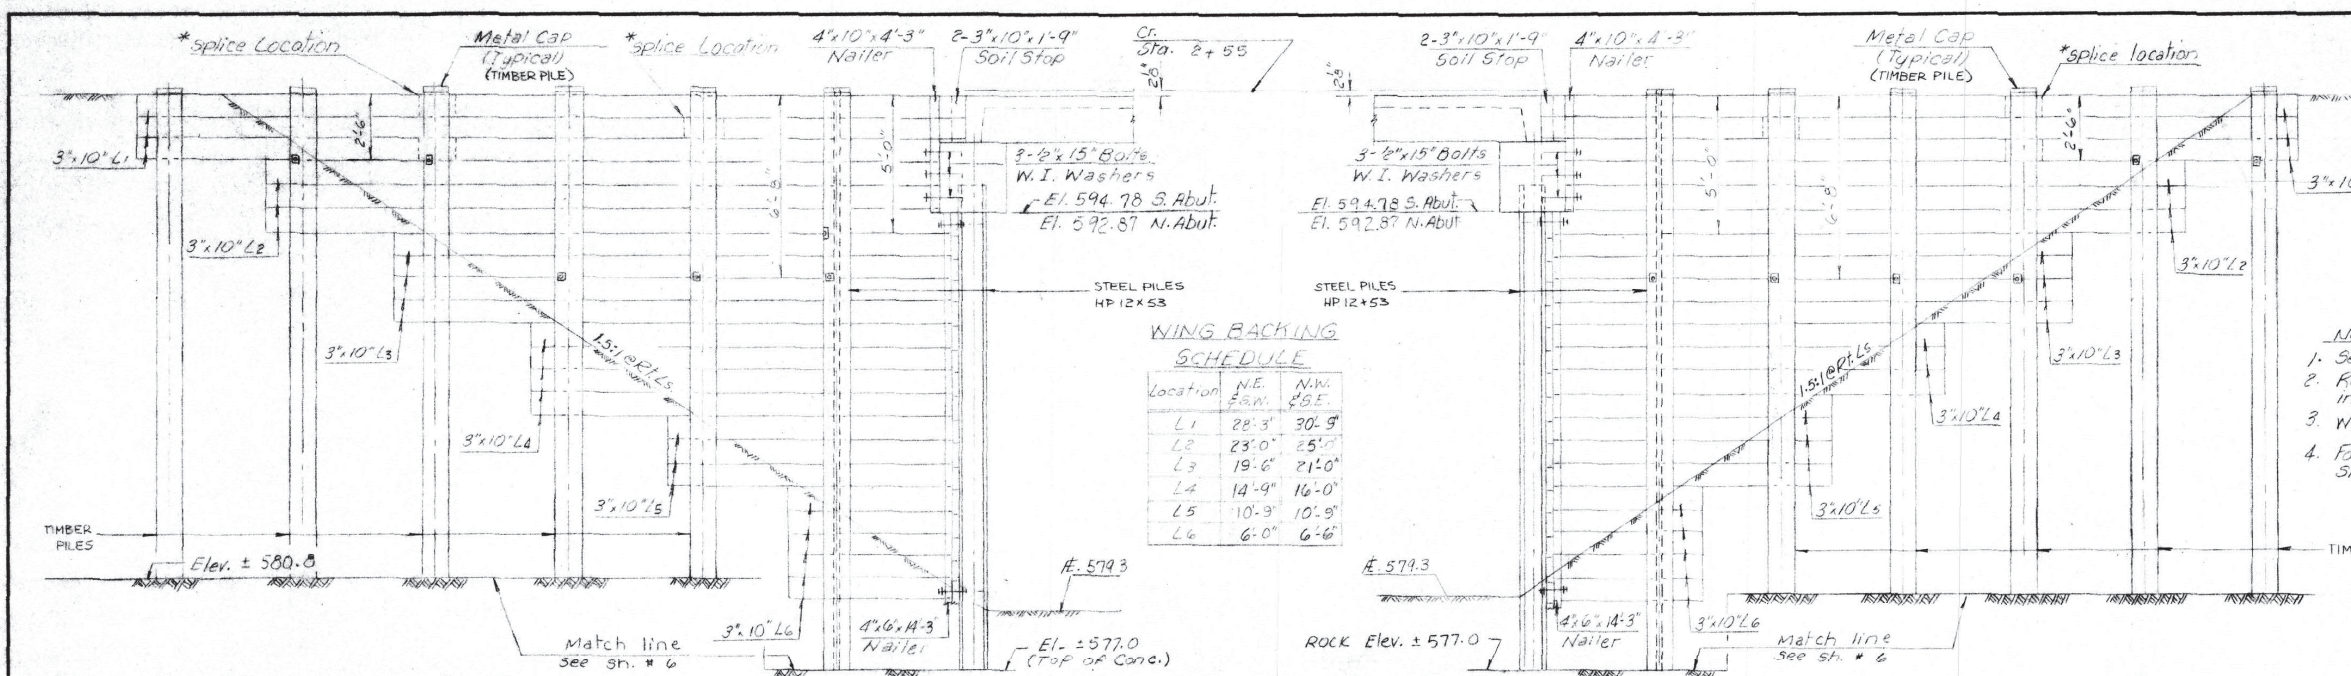 *Splice Location
Metal Cap
(Typical)
(TIMBER PILE)
*Splice Location
4"x10"x4'-3"
Nailer
2-3"x10"x1'-9"
Soil Stop
Cr.
Sta. 2+55
2-3"x10"x1'-9"
Soil Stop
4"x10"x4'-3"
Nailer
Metal Cap
(Typical)
(TIMBER PILE)
*Splice location
3"x10" L1
2'-6"
6'-9"
5'-0"
3-½"x15" Bolts
W. I. Washers
El. 594.78 S. Abut.
El. 592.87 N. Abut.
3-½"x15" Bolts
W. I. Washers
El. 594.78 S. Abut.
El. 592.87 N. Abut
5'-0"
6'-9"
2'-6"
3"x10"
3"x10" L2
3"x10" L2
STEEL PILES
HP 12x53
STEEL PILES
HP 12x53
3"x10" L3
1.5:1 @ Rt. Ls
WING BACKING
SCHEDULE
Location N.E. & S.W. N.W. & S.E.
L1 28'-3" 30'-9"
L2 23'-0" 25'-0"
L3 19'-6" 21'-0"
L4 14'-9" 16'-0"
L5 10'-9" 10'-9"
L6 6'-0" 6'-6"
1.5:1 @ Rt. Ls
3"x10" L3
3"x10" L4
3"x10" L4
3"x10" L5
3"x10" L5
1.
2.
3.
4.
TIMBER
PILES
Elev. ± 580.8
Æ. 579.3
Æ. 579.3
Match line
See sh. # 6
3"x10" L6
4"x6"x14'-3"
Nailer
El. ±577.0
(Top of Conc.)
ROCK Elev. ±577.0
4"x6"x14'-3"
Nailer
3"x10" L6
Match line
See sh. # 6